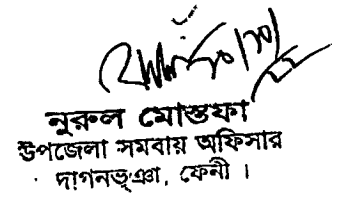 নুরুল মোস্তফা
উপজেলা সমবায় অফিসার
দাগনভূঞা, ফেনী ।